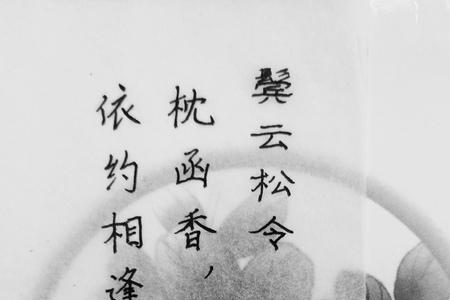 鬓云松令
枕函香，
依约相逢